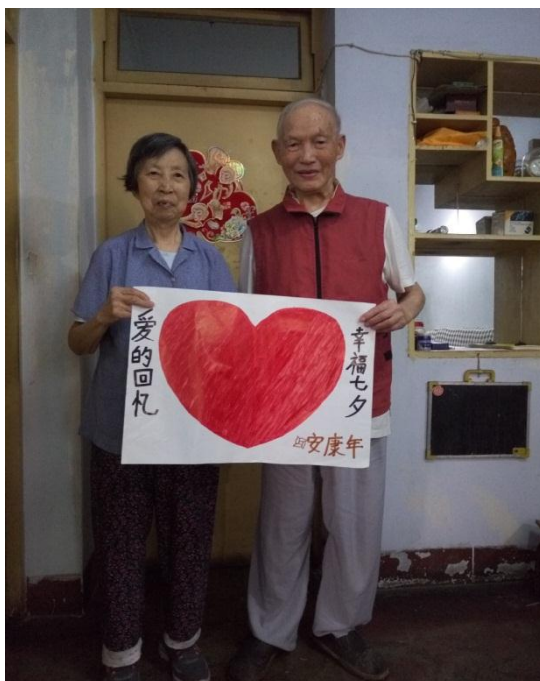 爱的回忆
幸福七夕
安康年